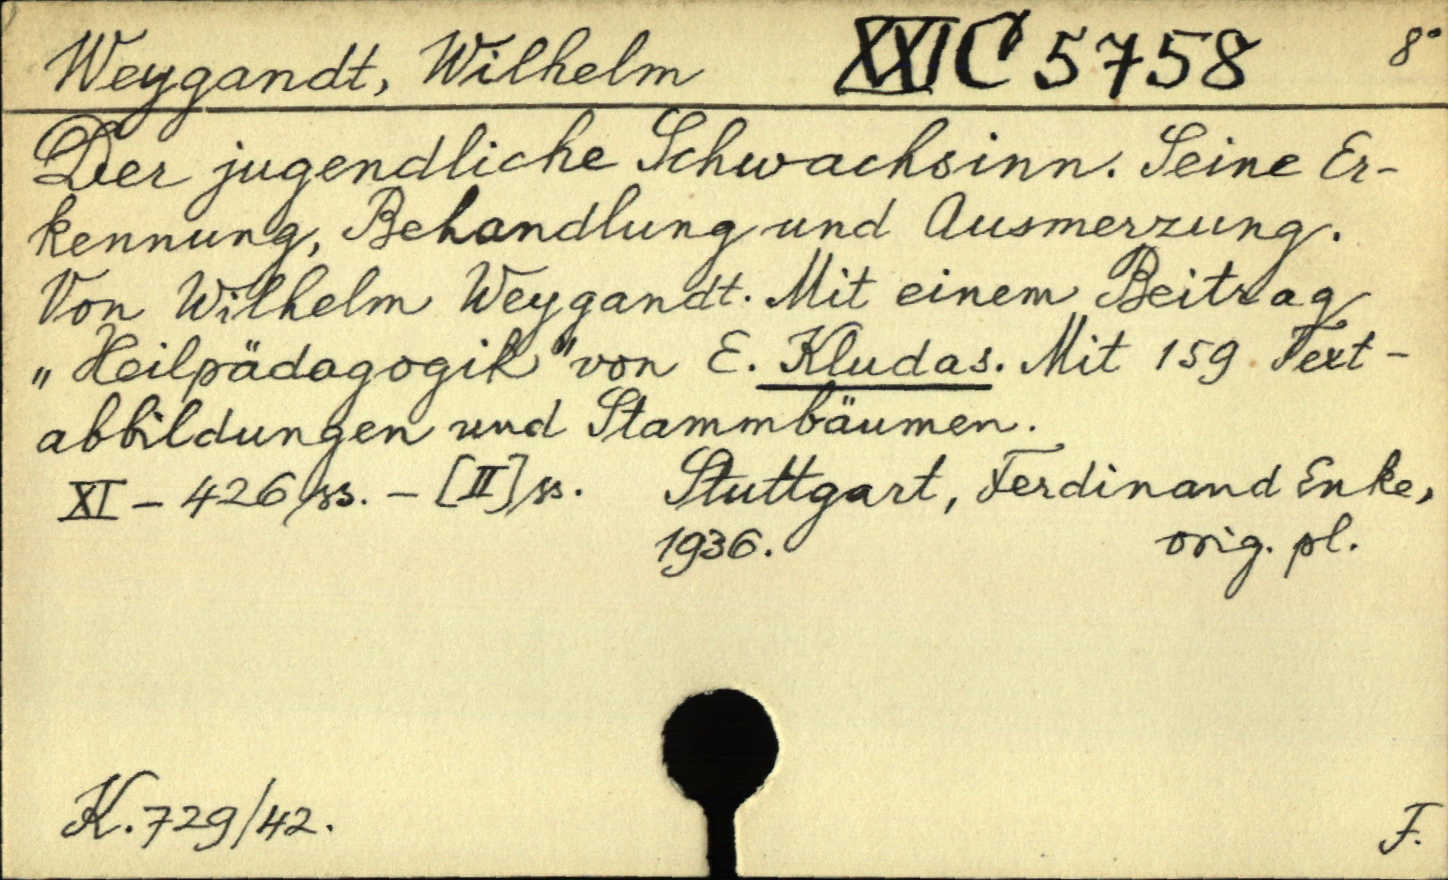 Weygandt, Wilhelm XXI C 5758 8°
Der jugendliche Schwachsinn. Seine Er-
kennung, Behandlung und Ausmerzung.
Von Wilhelm Weygandt. Mit einem Beitrag
„Heilpädagogik" von E. Kludas. Mit 159 Text-
abbildungen und Stammbäumen.
XI – 426 ss. – [II] ss. Stuttgart, Ferdinand Enke,
1936. orig. pl.
K. 729/42. F.